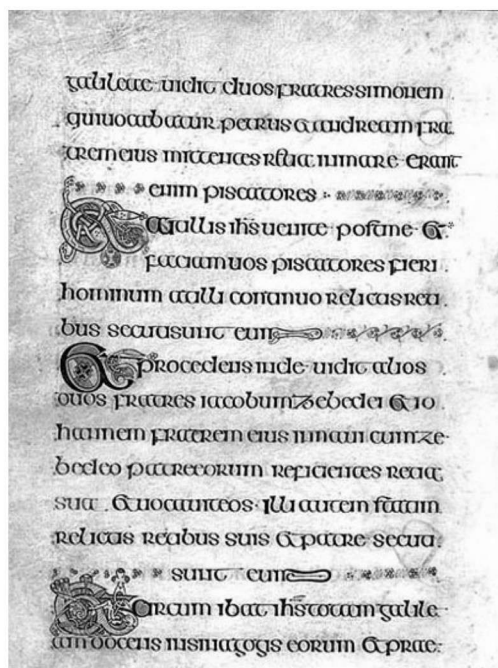 galileae uidit duos fratres simonem
qui uocabatur petrus & andream fra
trem eius mittentes r&ia in mare · erant
enim piscatores
&ait illis ihs uenite post me · &
faciam uos piscatores fieri
hominum at illi continuo relictis reti
bus secuti sunt eum
& procedens inde uidit alios
duos fratres iacobum zebedei & io
hannem fratrem eius in naui cum ze
bedeo patre eorum reficientes retia
sua · & uocauit eos · illi autem statim
relictis retibus suis & patre secuti
sunt eum
& circum ibat ihs totam galile
am docens in sinagogis eorum & prae